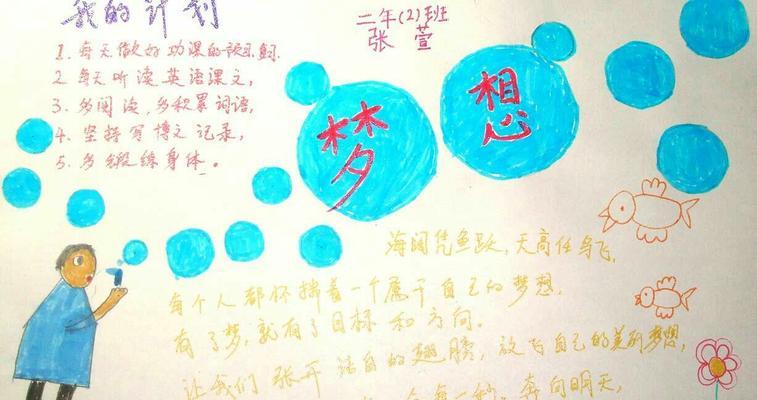 我的计划
1. 每天做好功课的预习
2 每天听读英语课文,
3. 多阅读,多积累词语,
4. 坚持写博文记录,
5. 多锻练身体。
二年(2)班
张萱
梦想
海阔凭鱼跃,天高任鸟飞,
每个人都怀揣着一个属于自己的梦想,
有了梦,就有了目标和方向。
让我们张开 自的翅膀,放飞自己的美丽梦想,
每一秒。奔向明天,